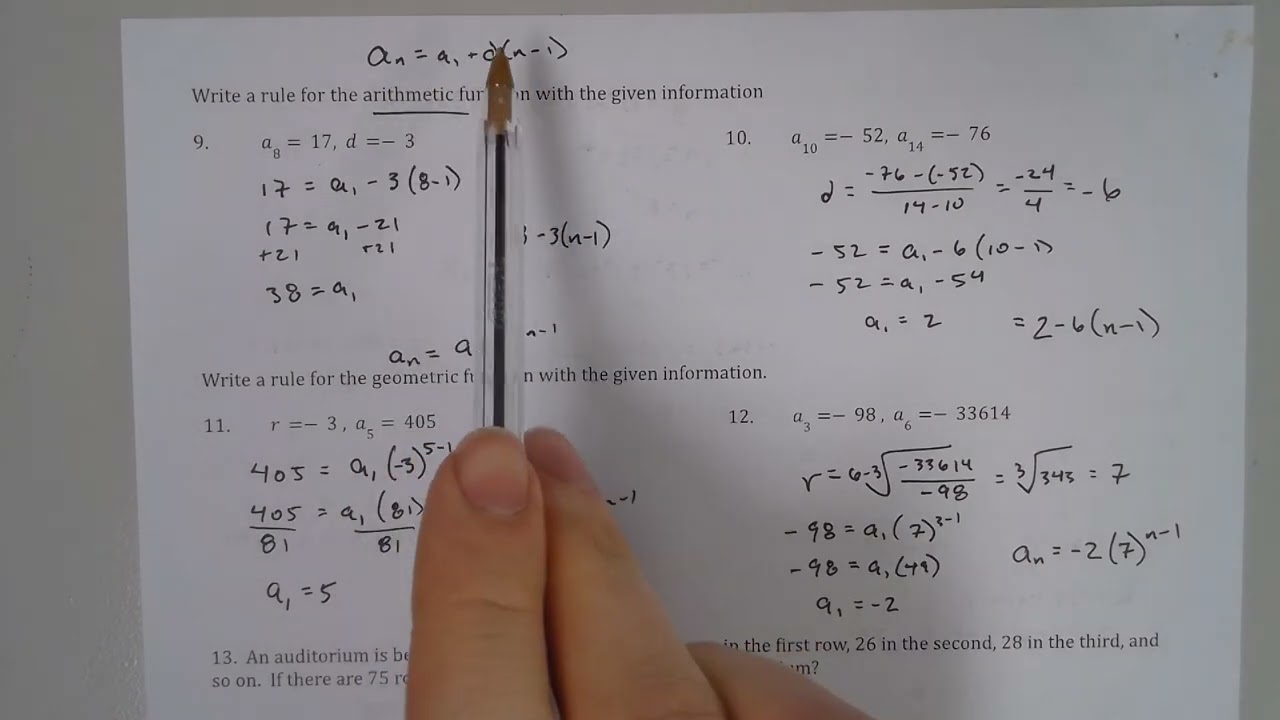 aₙ = a₁ + d(n-1)
Write a rule for the arithmetic with the given information
9. a₈ = 17, d = − 3
17 = a₁ - 3(8-1)
17 = a₁ - 21
+21 +21
38 = a₁
-3(n-1)
10. a₁₀ = − 52, a₁₄ = − 76
d = -76-(-52)/14-10 = -24/4 = -6
-52 = a₁ - 6(10-1)
-52 = a₁ - 54
a₁ = 2 = 2-6(n-1)
aₙ = a n-1
Write a rule for the geometric with the given information.
11. r = − 3, a₅ = 405
405 = a₁(-3)⁵⁻¹
405 = a₁(81)
81 81
a₁ = 5
n-1
12. a₃ = − 98, a₆ = − 33614
r = ⁶⁻³√-33614/-98 = ³√343 = 7
-98 = a₁(7)³⁻¹
-98 = a₁(49)
a₁ = -2
aₙ = -2(7)ⁿ⁻¹
13. An auditorium is in the first row, 26 in the second, 28 in the third, and
so on. If there are 75